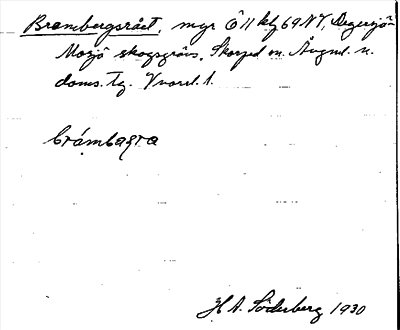 Brambergsrået, myr Ö 11 kly 69 NV, Degersjö-
Mosjö skogsgräns, Skorped sn. Ångml. n.
doms. tg. Yvonl. l.
brámbaǥra
H A. Söderberg 1930